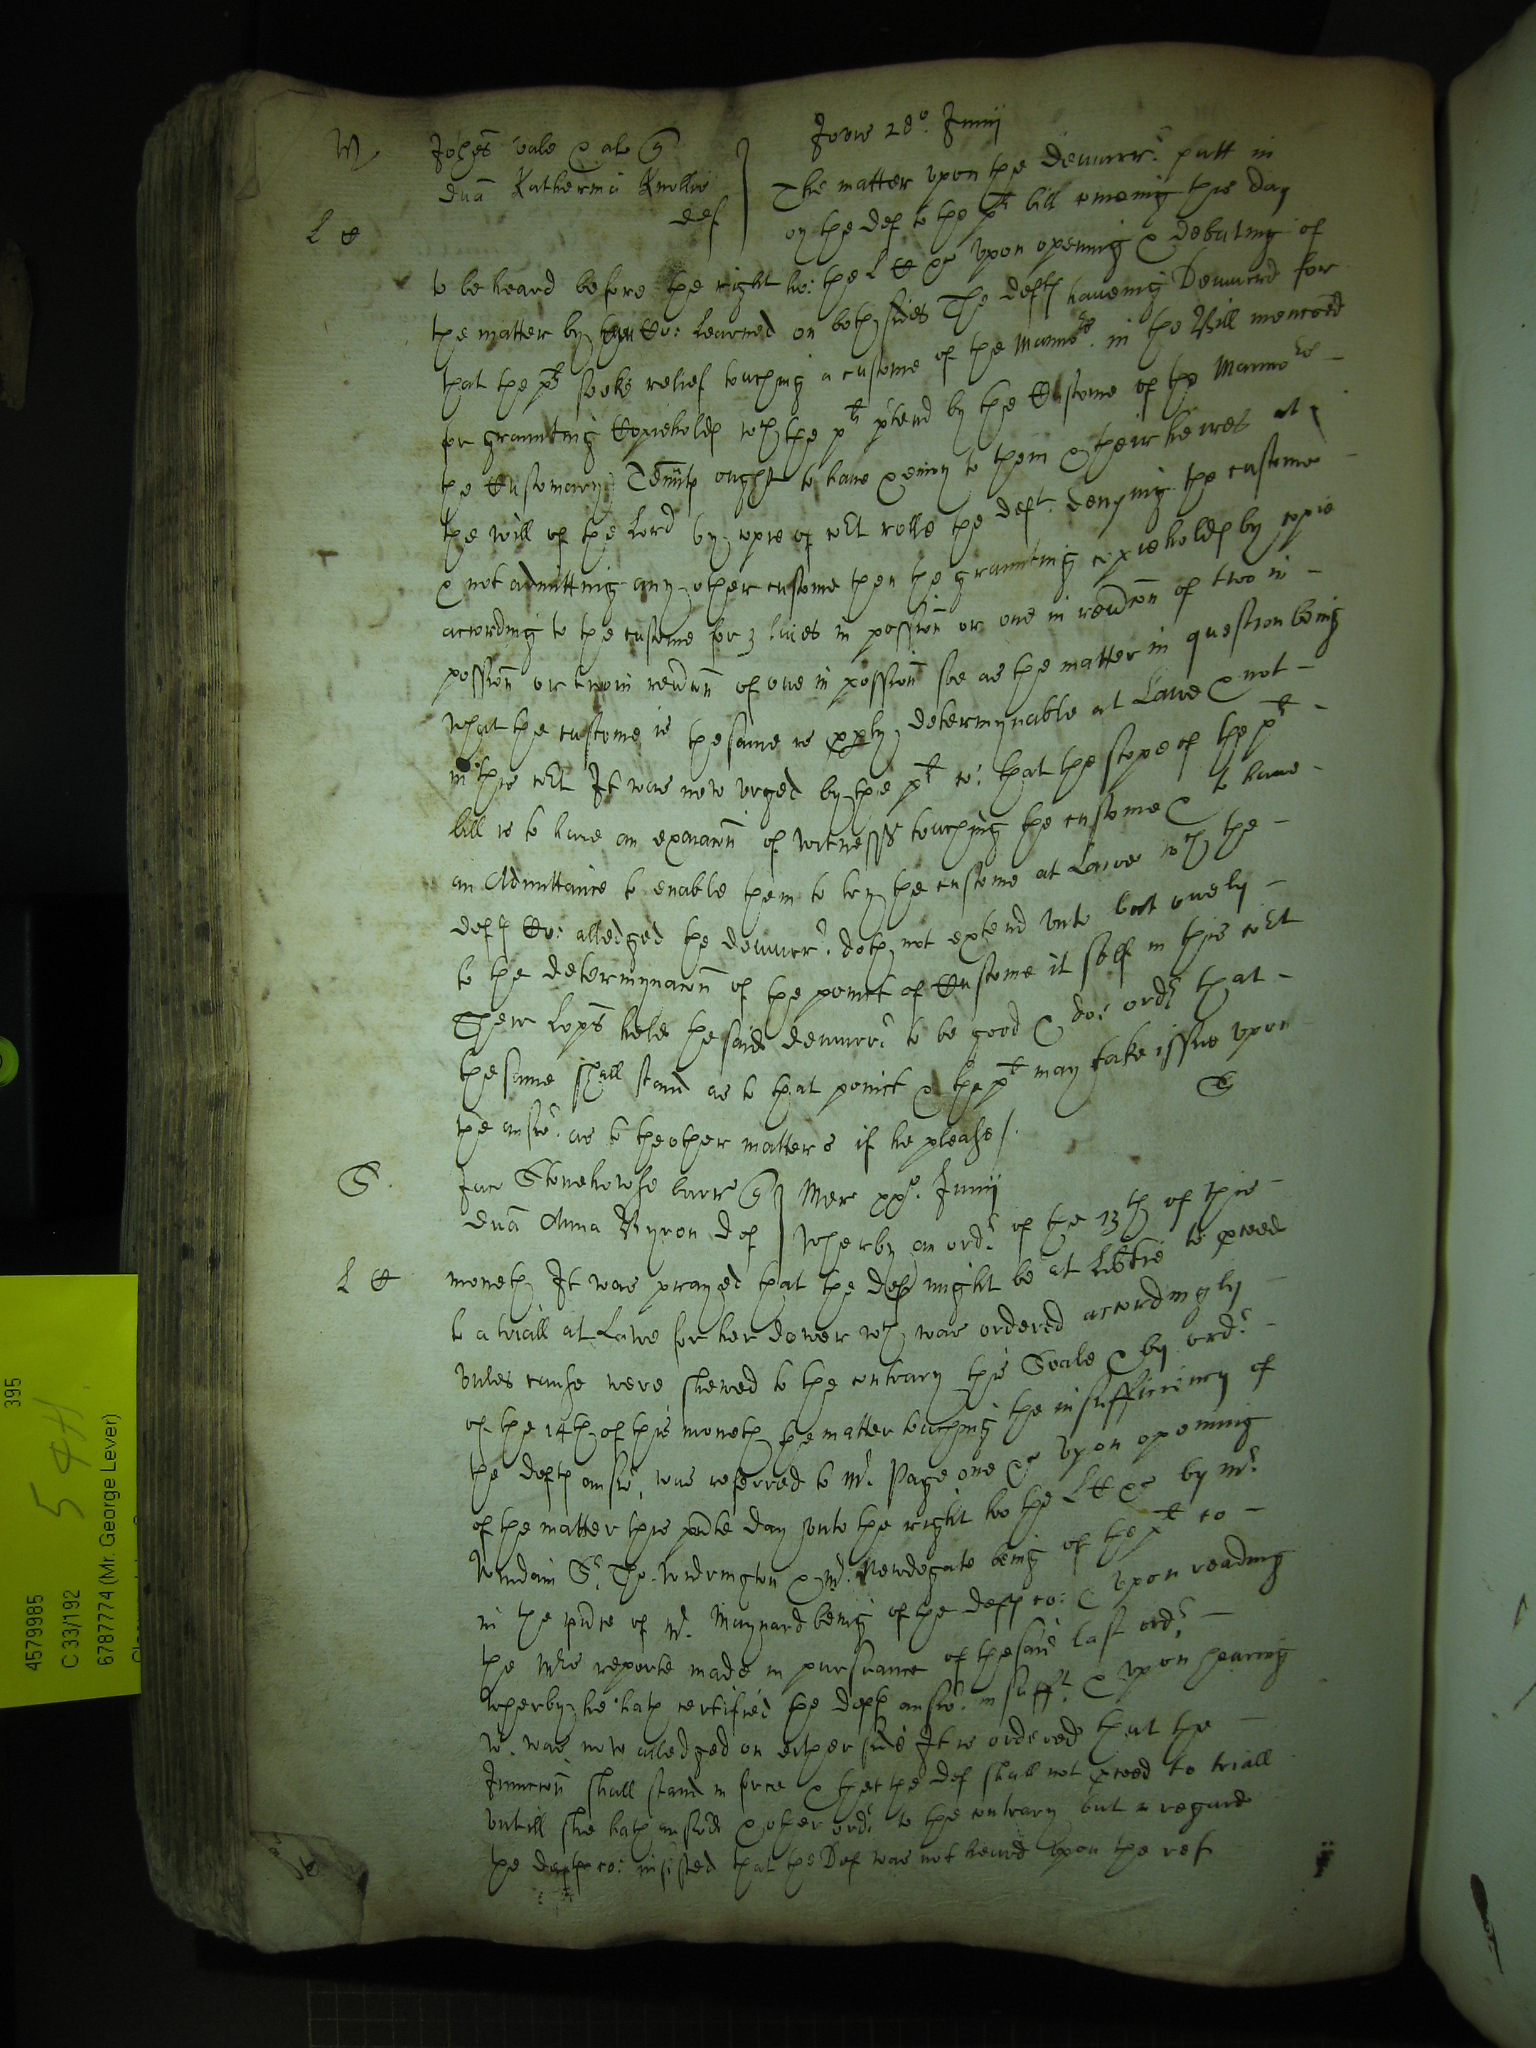 Jovis 28o. Junij
W. Johes Vale & al q
Dna Katherina Knollis
def
The matter upon the demurrr. putt in
L C
by the def to the plts bill comeing this day
to be heard before the right ho: the L C &c upon opening & debating of
the matter by Co: Learned on both sides The defts haueing Demurrd for
that the plt seeks relief touching a custome of the Mannors. in the Bill menconed
for graunting Copieholds wch the plts ptend by the Custome of the Mannors
the Customary Tennts ought to haue & enioy to them & their heires at
the will of the Lord by copie of Cort rolls the deft. denying the custome
& not admitting any other custome then the graunting copieholds by copie
according to the custome for 3 liues in possion or one in revercon of two in
possion or two in revercon of one in possion soe as the matter in question being
what the custome is the same is pply determynable at Lawe & not
in this Cort It was now vrged by the plts co: that the scope of the plts
bill is to haue an examacon of witnesses touching the custome & to haue
an Admittance to enable them to try the custome at Lawe wch the
defts Co: alledged the demurrr. doth not extend vnto but onely
to the determynacon of the poinct of Custome it self in this Cort
Their Lopps held the said demurrr. to be good & doe order that
the same shall stand as to that poinct & the plt may take issue vpon
the answ. as to the other matters if he please /.
S. Jac Stonehowse barr q
Dna Anna Byron def
Mer xxo. Junij
Wherby an ordr. of the 13th of this
L C
moneth It was prayed that the def might be at Libtie to pceed
to a triall at Lawe for her dower wch was ordered accordingly
vnles cause were shewed to the contrary this Seale & by ordr.
of the 14th of this moneth the matter touching the insufficiency of
the defts answ, was referred to Mr. Page one &c Vpon opening
of the matter this pnte day vnto the right ho the L C &c by Mr.
Windam Sr. Tho. Widrington & Mr. Newdegate being of the plts co
in the pnce of Mr. Maynard being of the defts co: & vpon reading
the Mrs reporte made in pursuance of the said last ordr.
wherby he hath certified the defts answ. insufft. & vpon hearing
w. was now alledged on either side It is ordered that the
Iniunccon shall stand in force & that the def shall not pceed to triall
vntill she hath answd & other ordr. to the contrary but in regard
the defts co: insisted that the Def was not heard vpon the ref
395
5 4H
4579985
C 33/192
6787774 (Mr. George Lever)